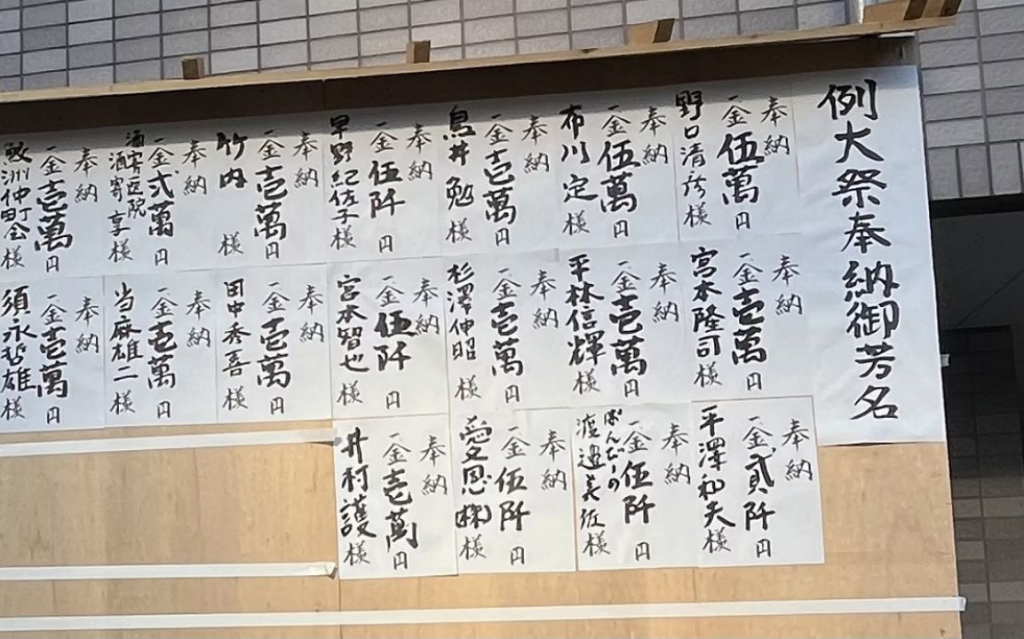 例大祭奉納御芳名
奉納
一金伍萬円
野口清 様
奉納
一金伍萬円
布川定 様
奉納
一金壱萬円
鳥井勉 様
奉納
一金伍阡円
早野紀佐子様
奉納
一金壱萬円
竹内 様
奉納
一金弐萬円
酒寄医院
酒寄享 様
奉納
一金壱萬円
鮫洲仲町会 様
奉納
一金壱萬円
宮本隆司様
奉納
一金壱萬円
平林信輝様
奉納
一金壱萬円
杉澤仲昭様
奉納
一金伍阡円
宮本智也様
奉納
一金壱萬円
田中秀喜様
奉納
一金壱萬円
当麻雄二様
奉納
一金壱萬円
須永哲雄様
奉納
一金貮阡円
平澤和夫様
奉納
一金伍阡円
ばんびーの
渡邉美佐様
奉納
一金伍阡円
愛恩(株)様
奉納
一金壱萬円
井村護様